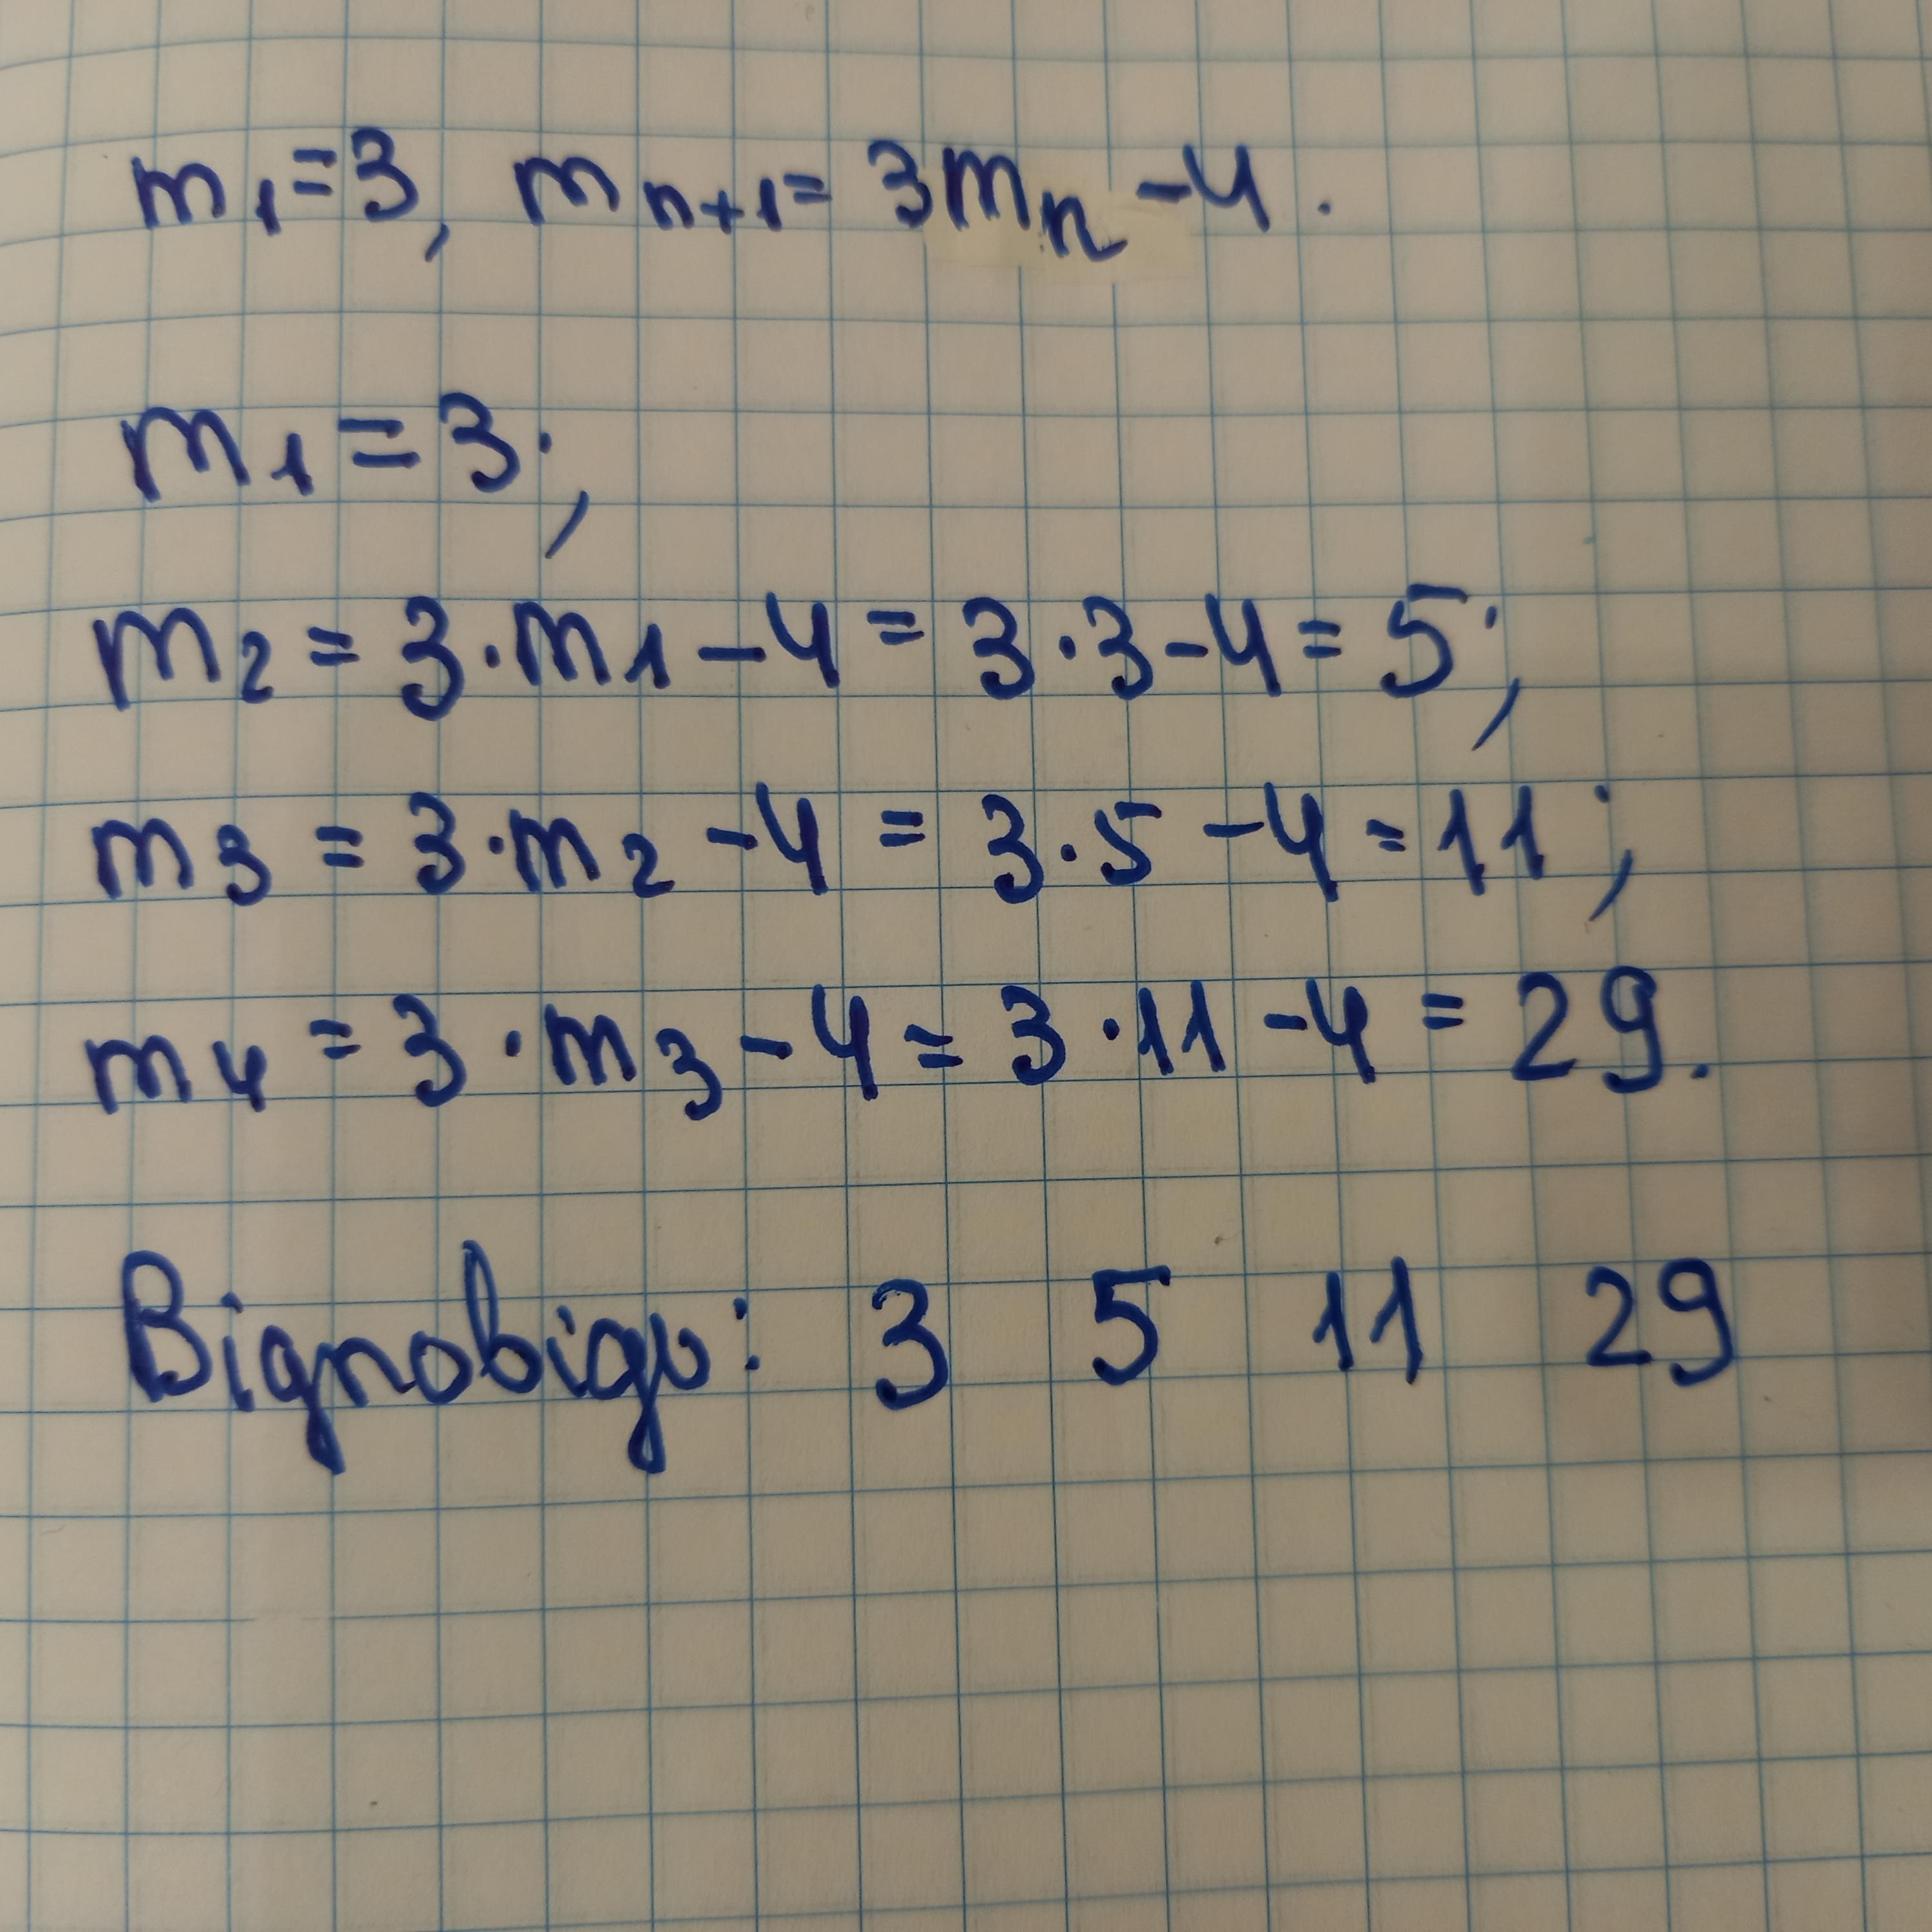 m₁=3, mₙ₊₁=3mₙ-4.
m₁=3;
m₂=3·m₁-4=3·3-4=5;
m₃=3·m₂-4=3·5-4=11;
m₄=3·m₃-4=3·11-4=29.
Відповідь: 3 5 11 29